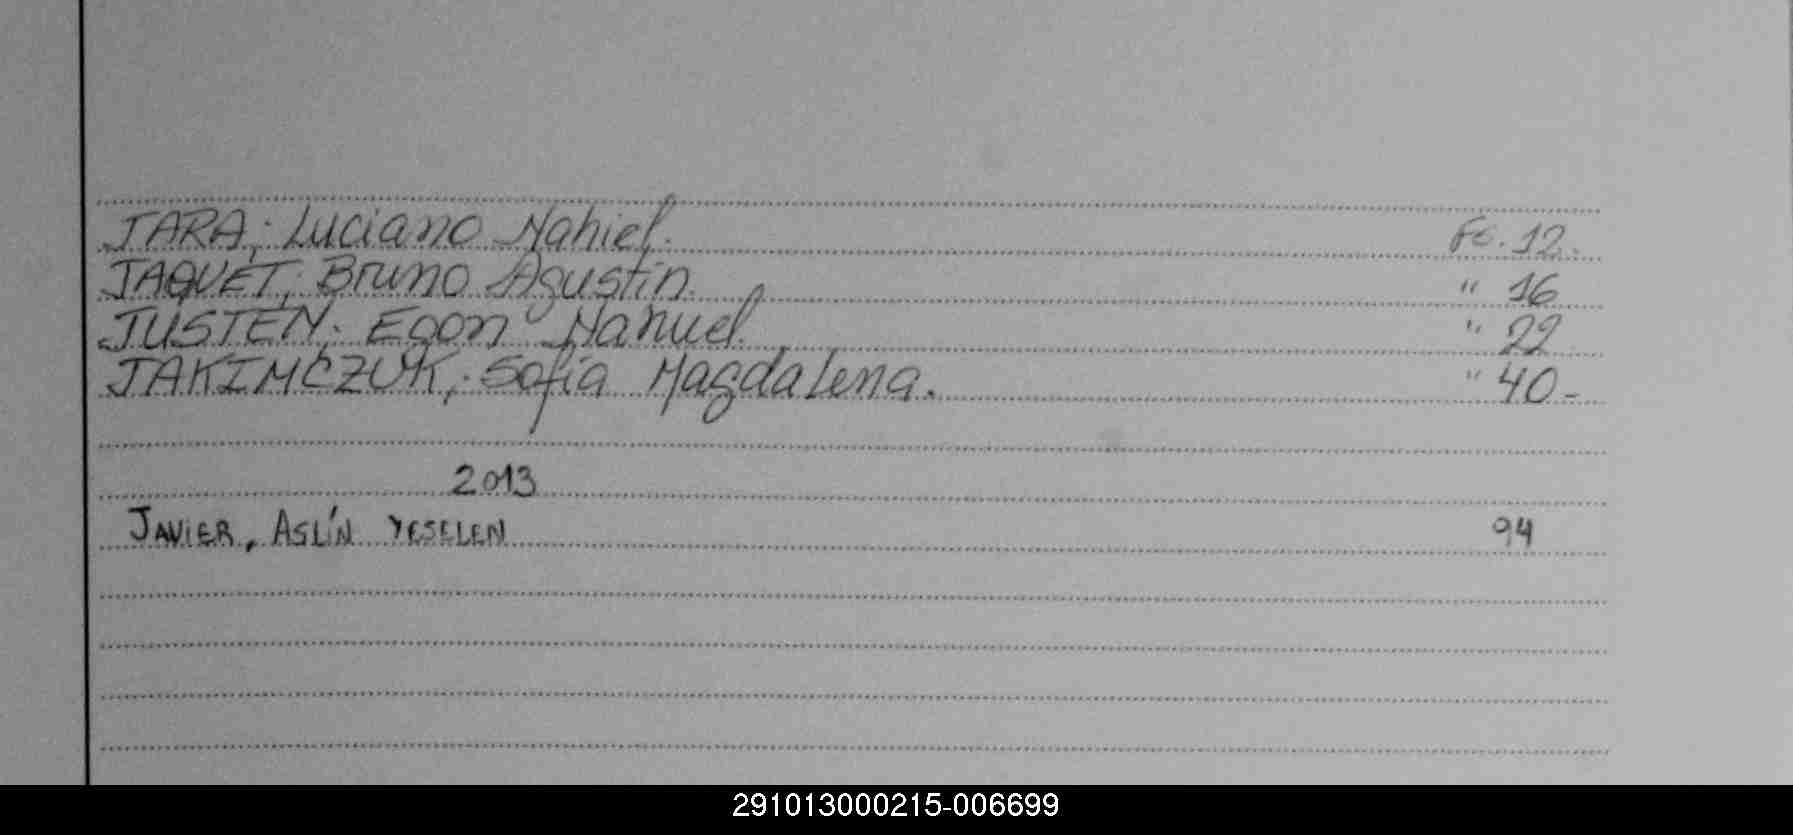 JARA; Luciano Nahiel. Fs. 12.
JAQUET; Bruno Agustín. " 16
JUSTEN; Egon Nahuel. " 22
JAKIMCZUK; Sofia Magdalena. " 40-
2013
JAVIER, ASLÍN YESELEN 94
291013000215-006699